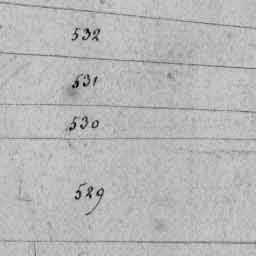 532
531
530
529